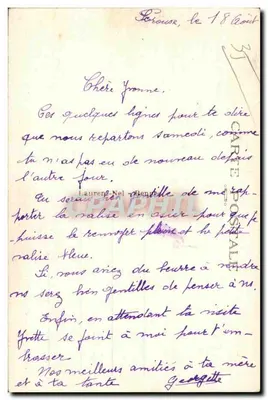 le 18 Août
35
Chère Yvonne.
Ces quelques lignes pour te dire
que nous repartons samedi, comme
tu n'as pas eu de nouveau depuis
l'autre jour.
Tu serais gentille de me rap-
porter la valise en osier pour que je
puisse la renvoyer pleine et la petite
valise bleue.
Si vous aviez du beurre à vendre
ns serez bien gentilles de penser à ns.
Enfin, en attendant ta visite
Yvette se joint à moi pour t'em-
brasser
Nos meilleurs amitiés à ta mère
et à ta tante Georgette
CARTE POSTALE